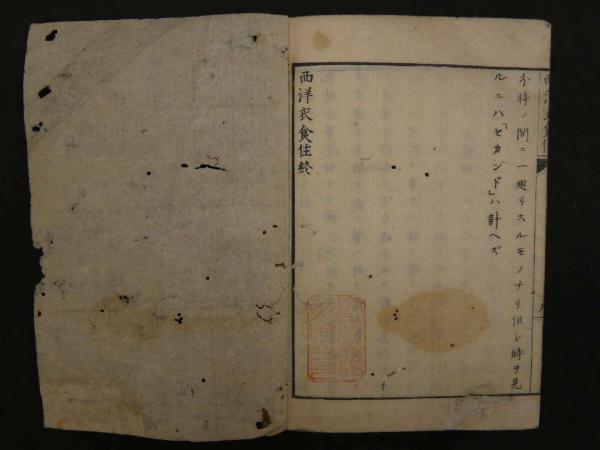 分時ノ間ニ一廻リスルモノナリ但シ時ヲ見
ルニハ「セカンド」ハ計ヘズ
西洋衣食住終
西洋衣食住